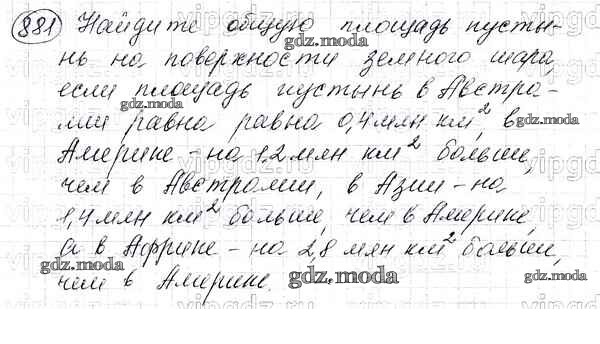 881 Найдите общую площадь пусты-
нь на поверхности земного шара,
если площадь пустынь в Австра-
лии равна равна 0,4 млн км², в
Америке - на 1,2 млн км² больше,
чем в Австралии, в Азии - на
1,4 млн км² больше, чем в Америке,
а в Африке - на 2,8 млн км² больше,
чем в Америке.